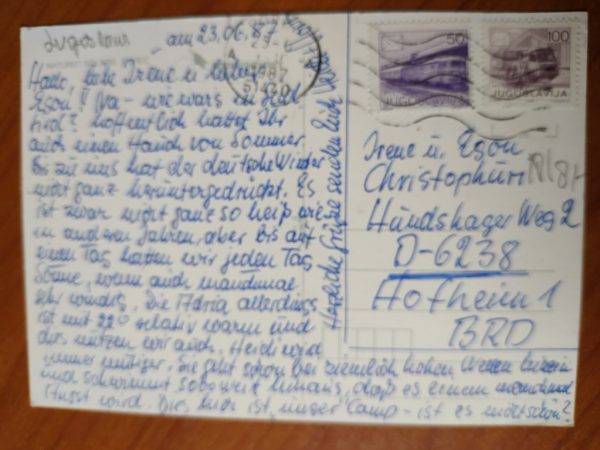 Jugoslawien
am 23.06.87
Hallo, liebe Irene u. lieber
Egon! Na - wie wars in
hoffentlich hattet Ihr
auch einen Hauch von Sommer.
Bis zu uns hat der deutsche Winter
nicht ganz heruntergedrückt. Es
ist zwar nicht ganz so heiß wie
in anderen Jahren, aber bis auf
einen Tag hatten wir jeden Tag
Sonne, wenn auch manchmal
sehr windig. Die Adria allerdings
ist mit 22° relativ warm und
das nützen wir auch. Heidi wird
immer mutiger. Sie geht schon bei ziemlich hohen Wellen hinein
und schwimmt so weit hinaus, daß es einem manchmal
Angst wird. Dies hier ist unser Camp - ist es nicht schön?
Herzliche Grüße senden Euch
50
JUGOSLAVIJA
100
JUGOSLAVIJA
1987
Irene u. Egon
Christophori
Hundshager Weg 2
D-6238
Hofheim 1
BRD